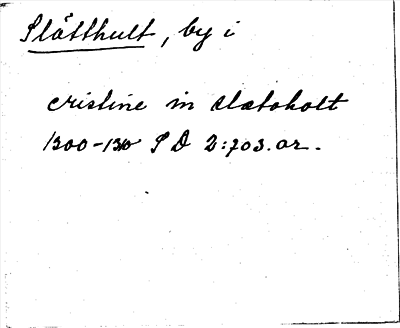 Slätthult, by i
cristine in slætoholt
1300-1310 SD 2:703. or.